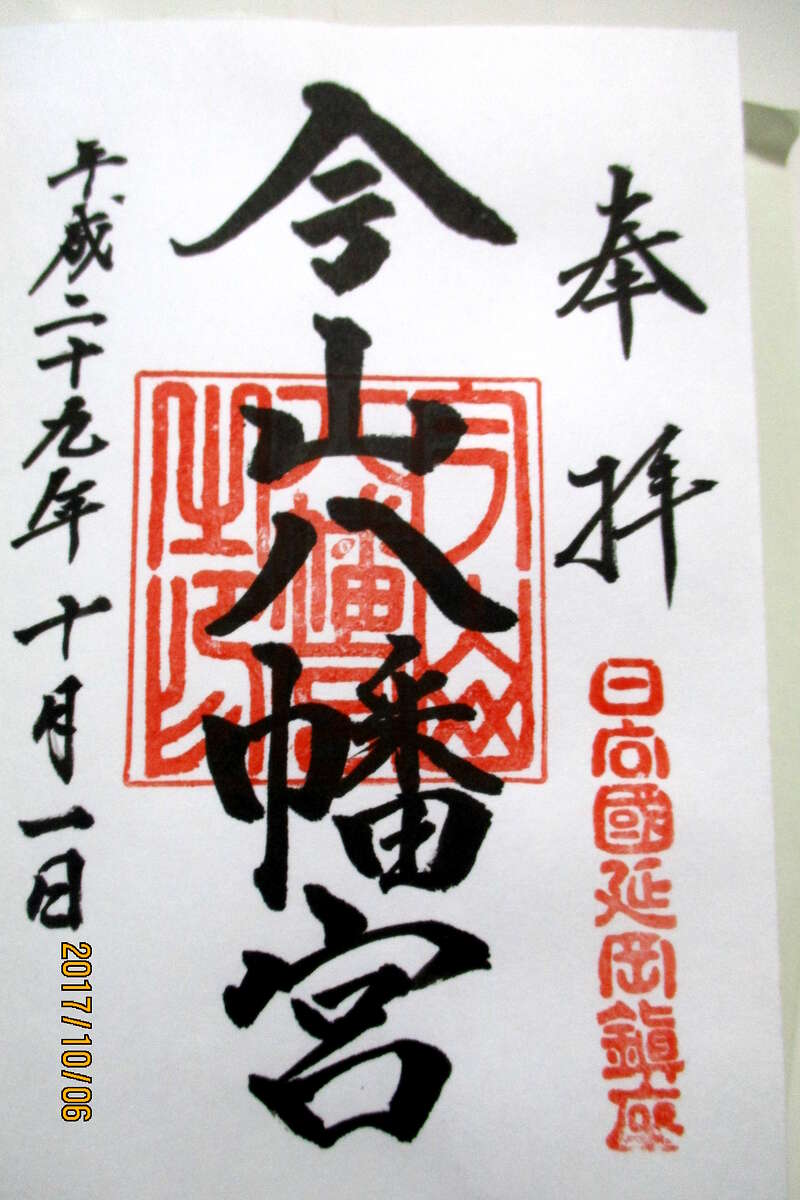 奉拝
日向國延岡鎮座
今山八幡宮
平成二十九年十月一日
2017/10/06